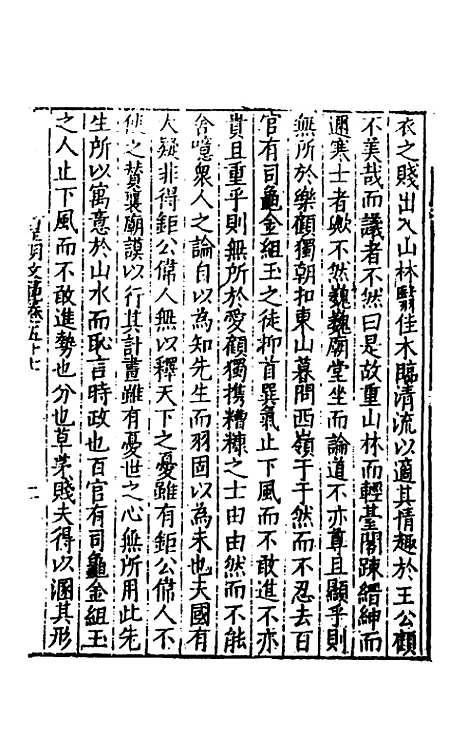 衣之賤出入山林翳佳木臨清流以適其情趣於王公顧
不美哉而議者不然曰是故重山林而輕臺閣踈縉紳而
邇寒士者歟不然巍巍廟堂坐而論道不亦尊且顯乎則
無所於樂顧獨朝扣東山暮問西嶺于于然而不忍去百
官有司龜金組玉之徒抑首巽氣止下風而不敢進不亦
貴且重乎則無所於愛顧獨携糟糠之士由由然而不能
舍噫衆人之論自以為知先生而羽固以為未也夫國有
大疑非得鉅公偉人無以釋天下之憂雖有鉅公偉人不
使之贊襄廟謨以行其計畫雖有憂世之心無所用此先
生所以寓意於山水而恥言時政也百官有司龜金組玉
之人止下風而不敢進勢也分也草茅賤夫得以溷其形
皇明文衡卷五十七